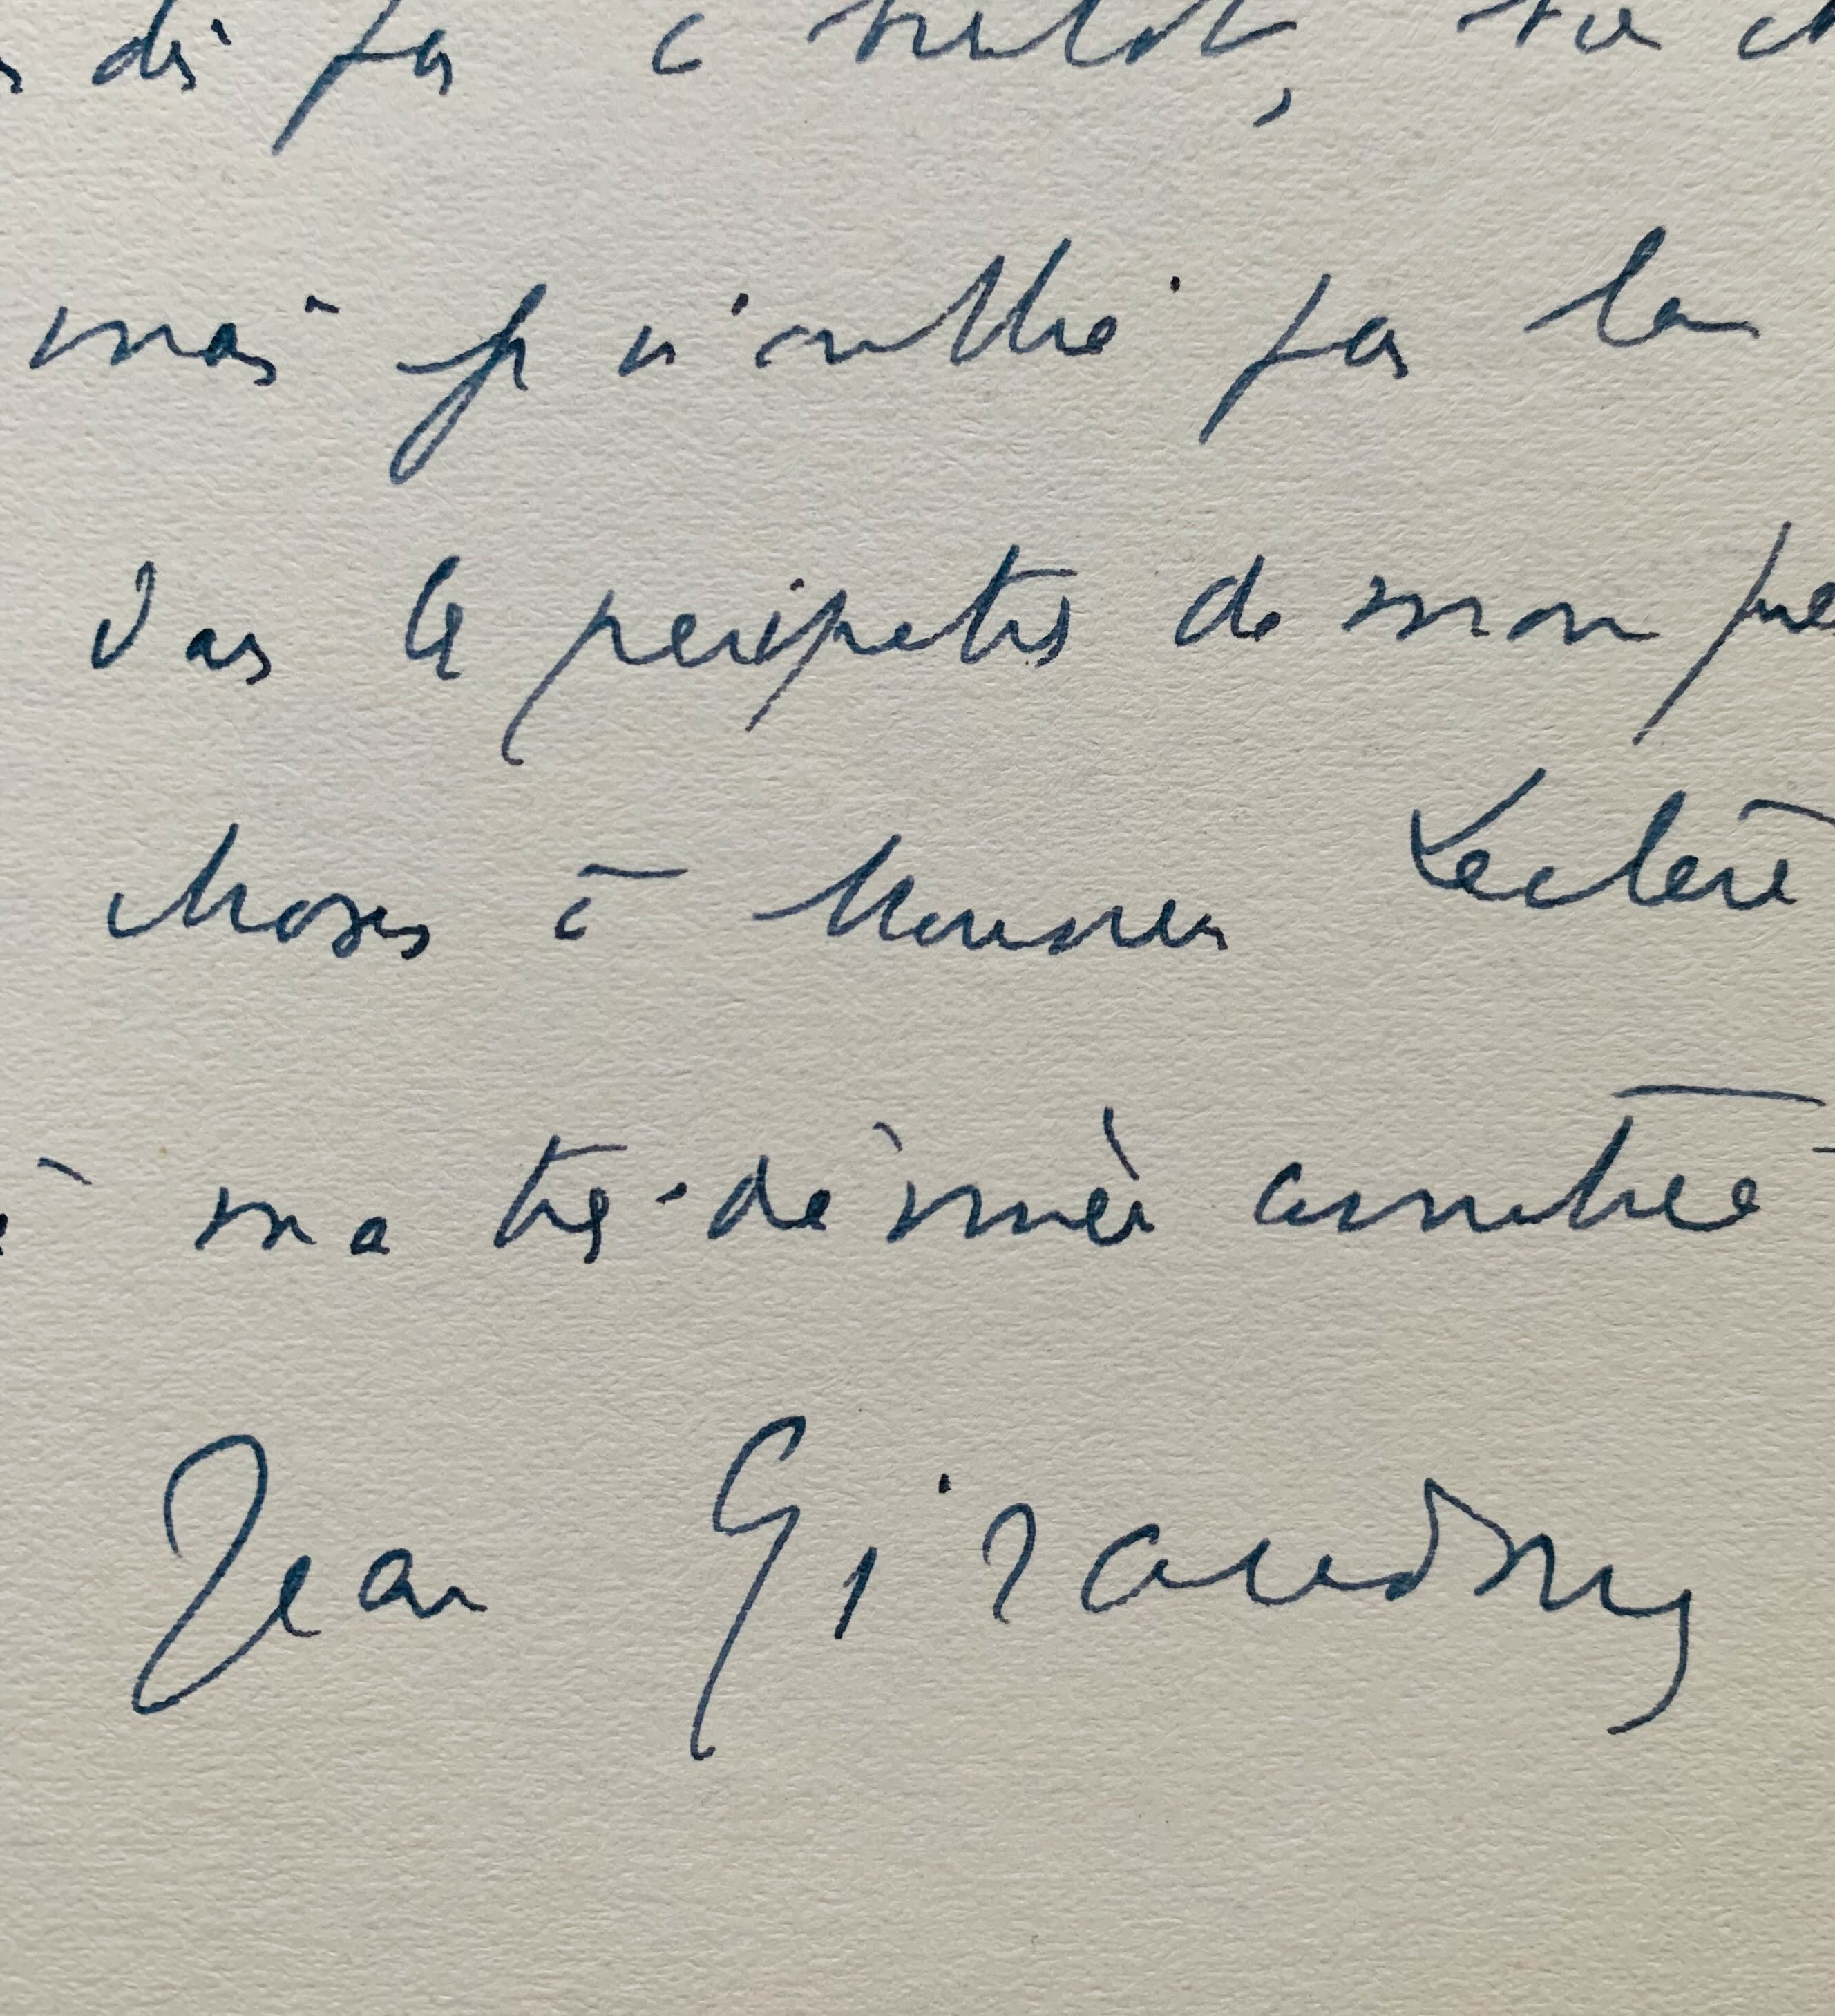 dis pas à bientôt,
mais je n'oublie pas la
dans les péripéties de mon
choses à Monsieur Leclere
à ma très dévouée amitié
Jean Giraudoux